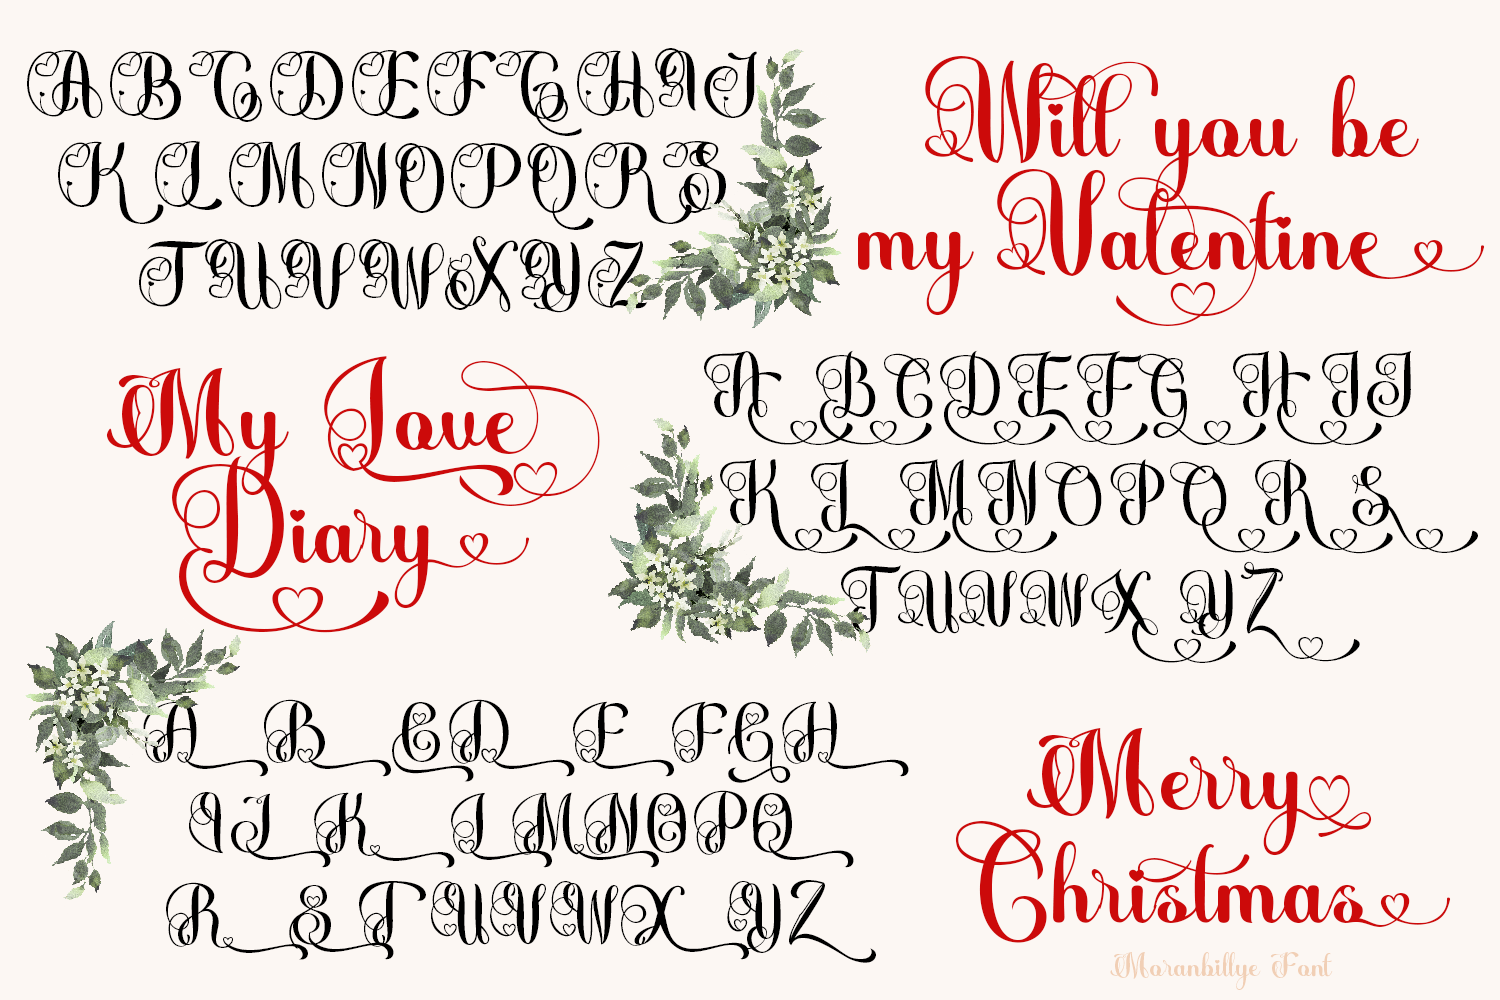 A B C D E F G H I J
K L M N O P Q R S
T U V W X Y Z
Will you be
my Valentine
My Love
Diary
A B C D E F G H I J
K L M N O P Q R S
T U V W X Y Z
A B C D E F G H
I J K L M N O P Q
R S T U V W X Y Z
Merry
Christmas
Moranbillye Font